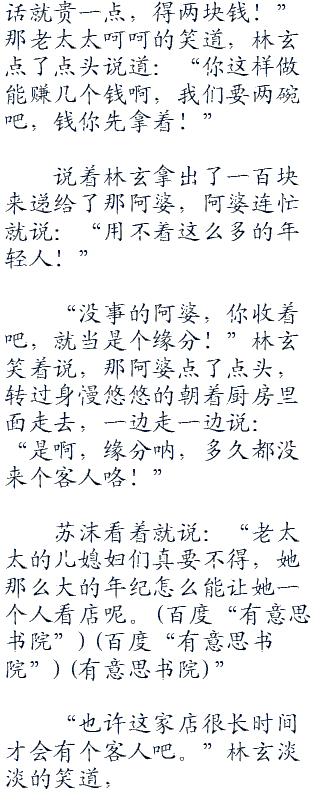 话就贵一点，得两块钱！”
那老太太呵呵的笑道，林玄
点了点头说道：“你这样做
能赚几个钱啊，我们要两碗
吧，钱你先拿着！”
说着林玄拿出了一百块
来递给了那阿婆，阿婆连忙
就说：“用不着这么多的年
轻人！”
“没事的阿婆，你收着
吧，就当是个缘分！”林玄
笑着说，那阿婆点了点头，
转过身漫悠悠的朝着厨房里
面走去，一边走一边说：
“是啊，缘分呐，多久都没
来个客人咯！”
苏沫看着就说：“老太
太的儿媳妇们真要不得，她
那么大的年纪怎么能让她一
个人看店呢。(百度“有意思
书院”)(百度“有意思书
院”)(有意思书院)”
“也许这家店很长时间
才会有个客人吧。”林玄淡
淡的笑道，